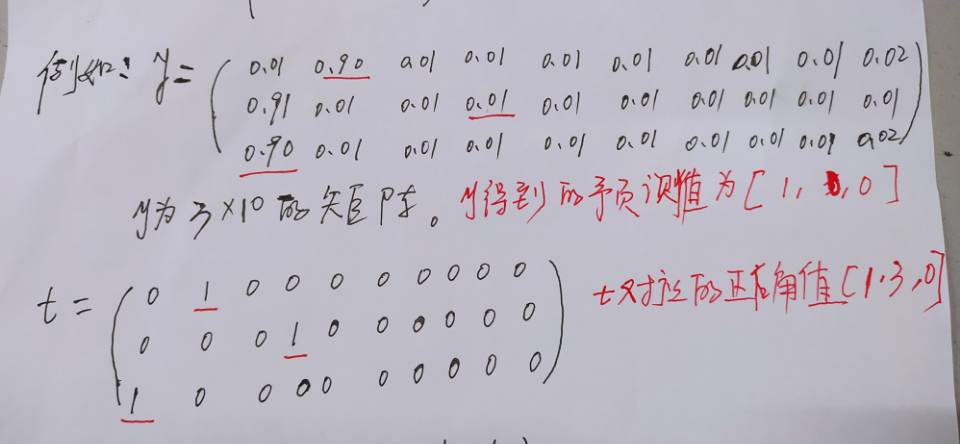 例如: y= ( 0.01 0.90 0.01 0.01 0.01 0.01 0.01 0.01 0.01 0.02
0.91 0.01 0.01 0.01 0.01 0.01 0.01 0.01 0.01 0.01
0.90 0.01 0.01 0.01 0.01 0.01 0.01 0.01 0.01 0.02 )
y为3×10的矩阵。y得到的予页测值为[1, ,0]
t= ( 0 1 0 0 0 0 0 0 0 0
0 0 0 1 0 0 0 0 0 0
1 0 0 0 0 0 0 0 0 0 )
t对应的正确值[1.3,0]